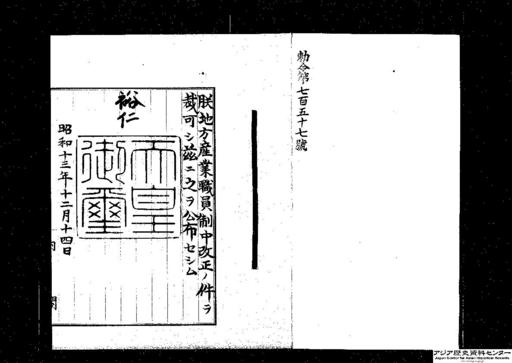 勅令第七百五十七號
朕地方産業職員制中改正ノ件ヲ
裁可シ茲ニ之ヲ公布セシム
裕仁
天皇
御璽
昭和十三年十二月十四日
内閣
アジア歴史資料センター
Japan Center for Asian Historical Records